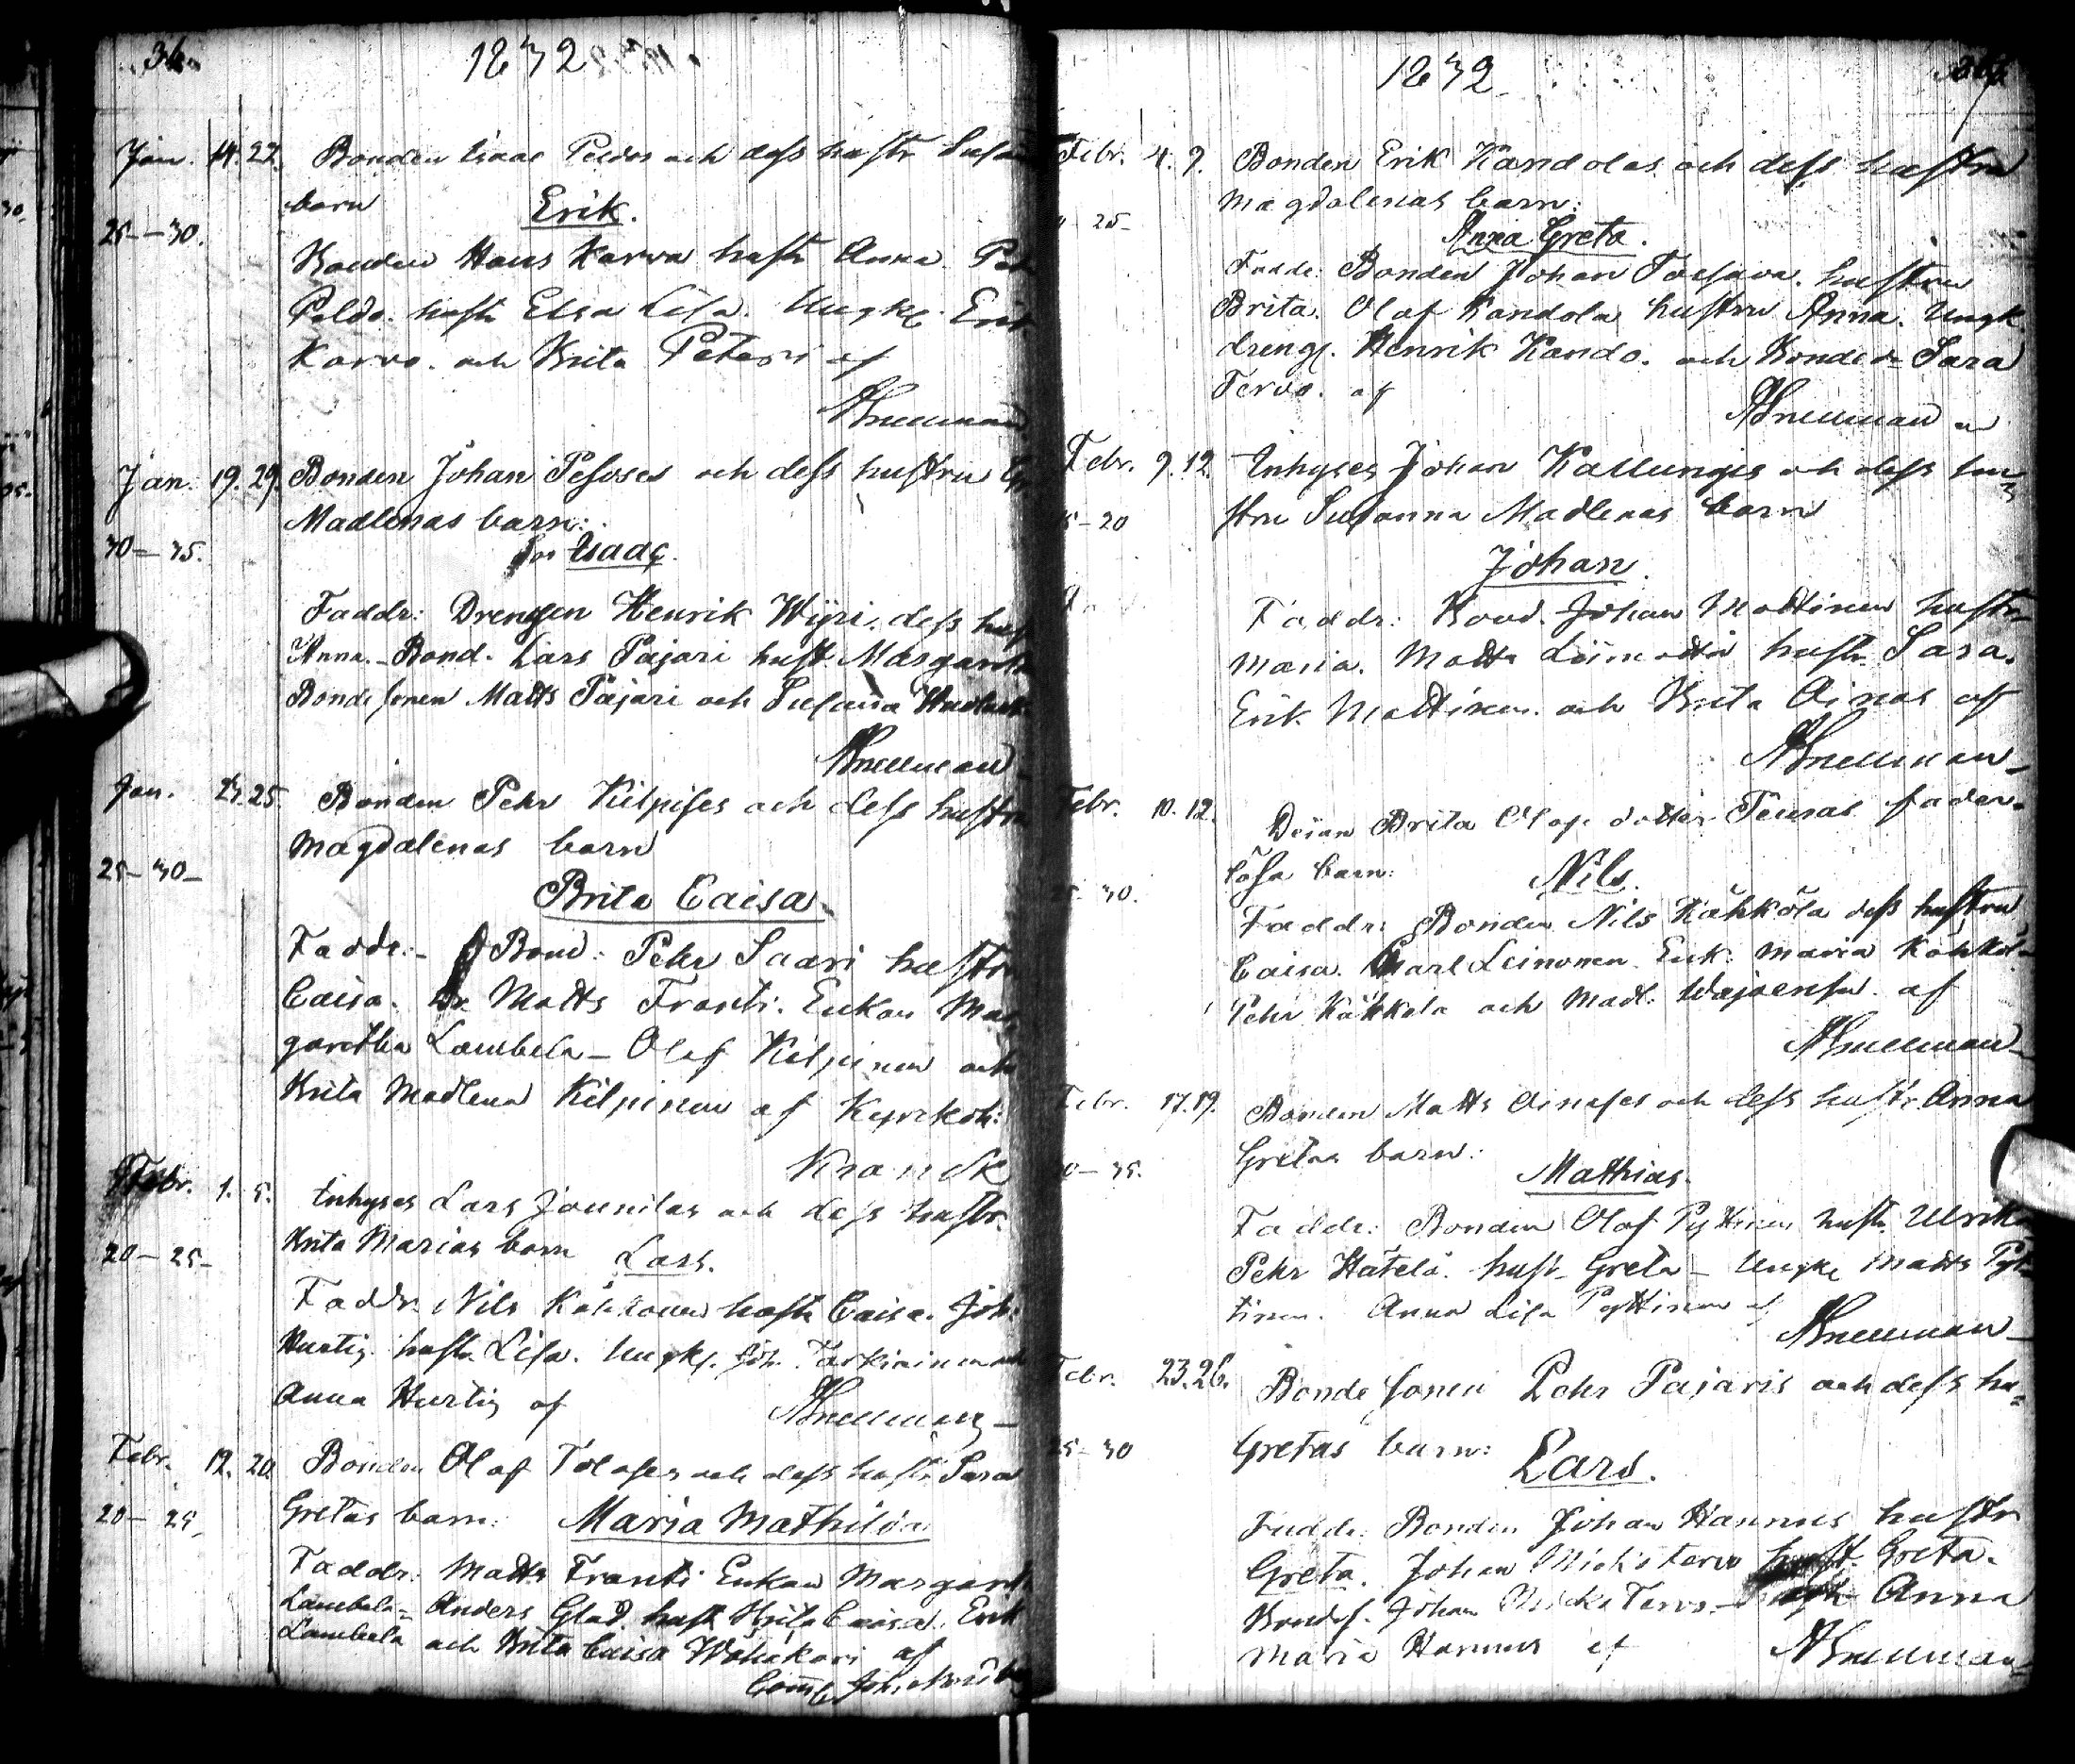 36
1832
Jan. 14. 22. Bonden Isaac Peldos och dess hustr Susan
barn Erik.
25—30.
Bonden Hans Karvo hustr Anna. Pehr
Peldo. hustr Elsa Lisa. Ungkl. Erik
Karvo. och Brita Peteri af
Snellman
Jan. 19. 29. Bonden Johan Pesoses och dess hustru
Madlenas barn:
30—35. Isaac.
Faddr: Drengen Henrik Wiyri. dess hus
Anna. Bond. Lars Pajari hust. Margareta
Bonde sonen Matts Pajari och Susanna
Snellman
Jan. 23. 25. Bonden Pehr Kilpises och dess hustru
Magdalenas barn
25—30—
Brita Caisa.
Faddr:- Bond: Pehr Saari hustru
Caisa. Matts Franti. Enkan Mar
garetha Lambela — Olof Kilpinen och
Brita Madlena Kilpinen af
Kranck
Febr. 1. 5. Inhyses Lars Jounilas och dess hustr.
Brita Marias barn Lars.
20—25—
Faddr. Nils Kähkönen hustr Caisa. Joh.
Hurtig. hustr. Lisa. Ungk. Joh. Tarkiainen och
Anna Hurtig af Snellman
Febr. 12. 20. Bonden Olof Toloses och dess hustr Sara
20—25. Gretas barn: Maria Mathilda
Faddr: Matts Franti Enkan Margareta
Lambela= Anders Glad. hustr Brita Caisa. Erik
Lambela och Brita Caisa Wähäkari af

1832
Febr. 4. 9. Bonden Erik Kandolas och dess hustru
Magdalenas barn:
25— Anna Greta.
Faddr: Bonden Johan hustru
Brita. Olof Kandola hustru Anna. Ungk
dreng. Henrik Kando. och Bonded- Sara
Tervo. af Snellman
Febr. 9. 12. Inhyses Johan Kallunges och dess hu=
15—20 stru Susanna Madlenas barn
Johan.
Faddr: Bond. Johan Mattinen hustr
Maria. Matts Liimatta hustr Sara.
Erik Mattinen. och Brita Ainas af
Snellman—
Febr. 10. 12. Pigan Brita Olofs dotter Teuras fader=
lösa barn: Nils.
25—30.
Faddr: Bonden Nils Kähköla dess hustru
Caisa. Carl Leinonen. Enk. Maria Kähkö=
Pehr Kähkola och Madl: af
Snellman—
Febr. 17. 19. Bonden Matts Ainases och dess hustr Anna
Gretas barn:
30—35. Mathias.
Faddr: Bonden Olof Pyttinen hustr Ulrika
Pehr Hätelä. hust. Greta— Ungkl Matts Pyt=
tinen. Anna Lisa Pyttinen af
Snellman—
Febr. 23. 26. Bonde sonen Pehr Pajaris och dess hu=
25—30 Gretas barn: Lars.
Faddr: Bonden Johan Hannus hustr
Greta. Johan Nicki Tervo hust. Greta.
Bondes. Johan Nicki Tervo Anna
Maria Hannus af Snellman